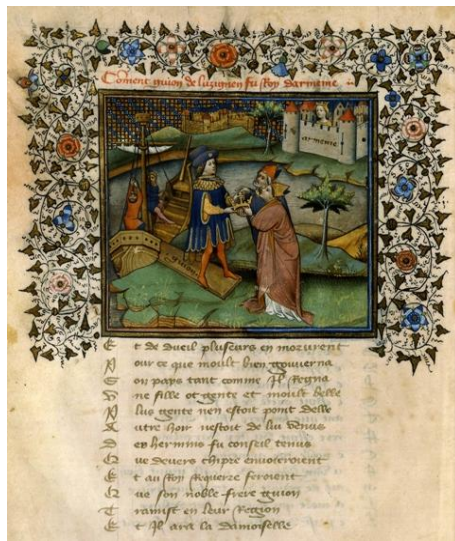 Coment guion de luzignen fu Roy darmenie
armenie
guion
Et de dueil pluseurs en morurent
Pour ce que moult bien gouverna
Son pays tant comme Il Regna
Vne fille ot gente et moult belle
Plus gente nen estoit point delle
Autre hoir nestoit de luy venus
des hermins fu conseil tenus
Que devers chipre envoieroient
Et au Roy Requerre feroient
Que son noble frere guion
Tramist en leur Region
Et Il ara la damoiselle